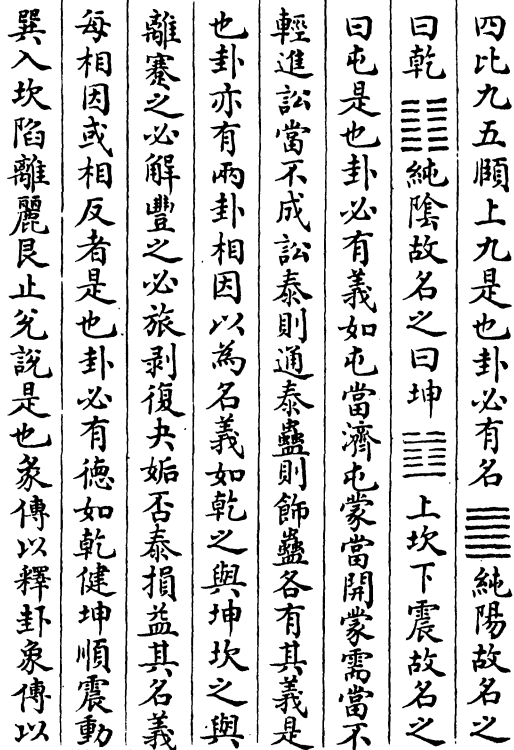 四比九五頤上九是也卦必有名䷀純陽故名之
曰乾䷁純陰故名之曰坤䷂上坎下震故名之
曰屯是也卦必有義如屯當濟屯蒙當開蒙需當不
輕進訟當不成訟泰則通泰蠱則飾蠱各有其義是
也卦亦有兩卦相因以為名義如乾之與坤坎之與
離蹇之必解豐之必旅剥復夬姤否泰損益其名義
每相因或相反者是也卦必有德如乾健坤順震動
巽入坎陷離麗艮止兌說是也彖傳以釋卦象傳以